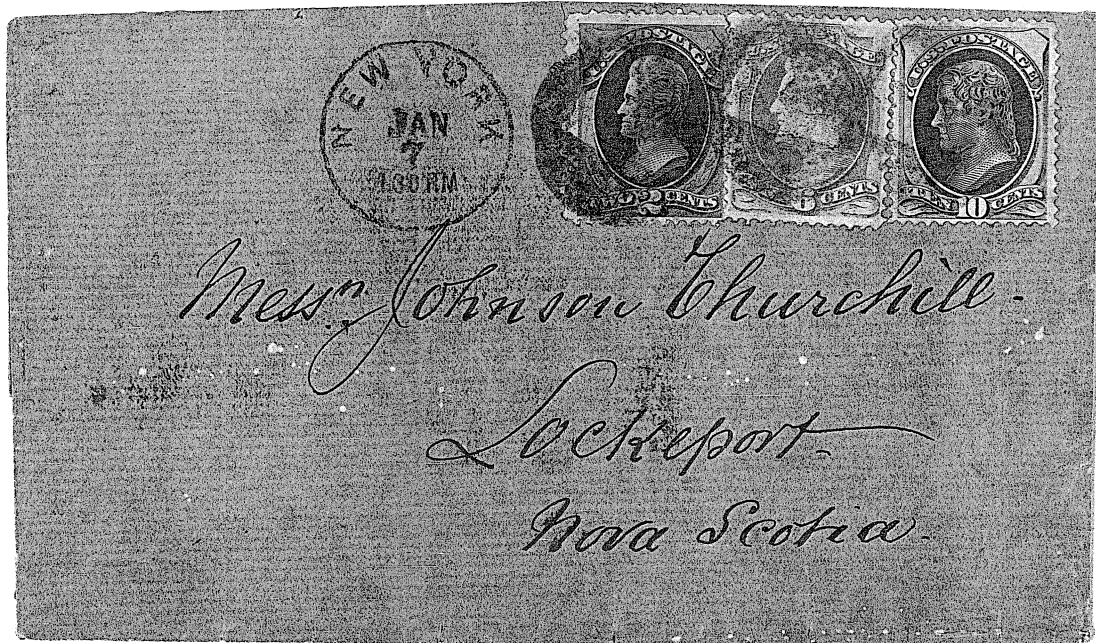 NEW YORK
JAN
7
1.30 PM
U.S. POSTAGE
TWO 2 CENTS
6 CENTS
U.S. POSTAGE
TEN 10 CENTS
Messrs Johnson Churchill.
Lockeport
Nova Scotia.